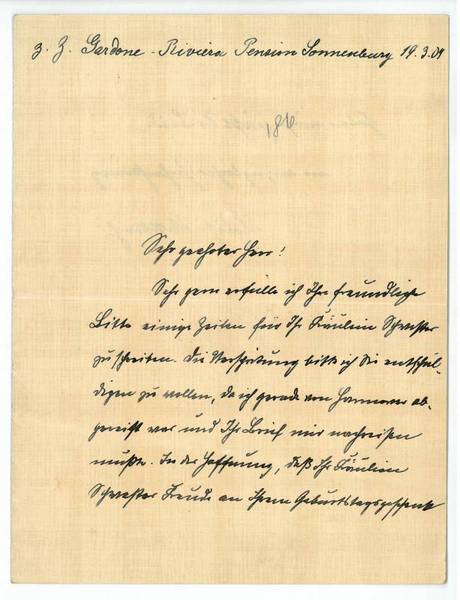 z. Z. Gardone-Riviera Pension Sonnenburg 19.3.01
Sehr geehrter Herr!
Sehr gern erfülle ich Ihre freundliche
Bitte einige Zeilen für Ihr Fräulein Schwester
zu schreiben. Die Verspätung bitte ich Sie entschul-
digen zu wollen, da ich gerade von Hannover ab-
gereist war und Ihr Brief mir nachreisen
mußte. In der Hoffnung, daß Ihr Fräulein
Schwester Freude an Ihrem Geburtstagsgeschenk